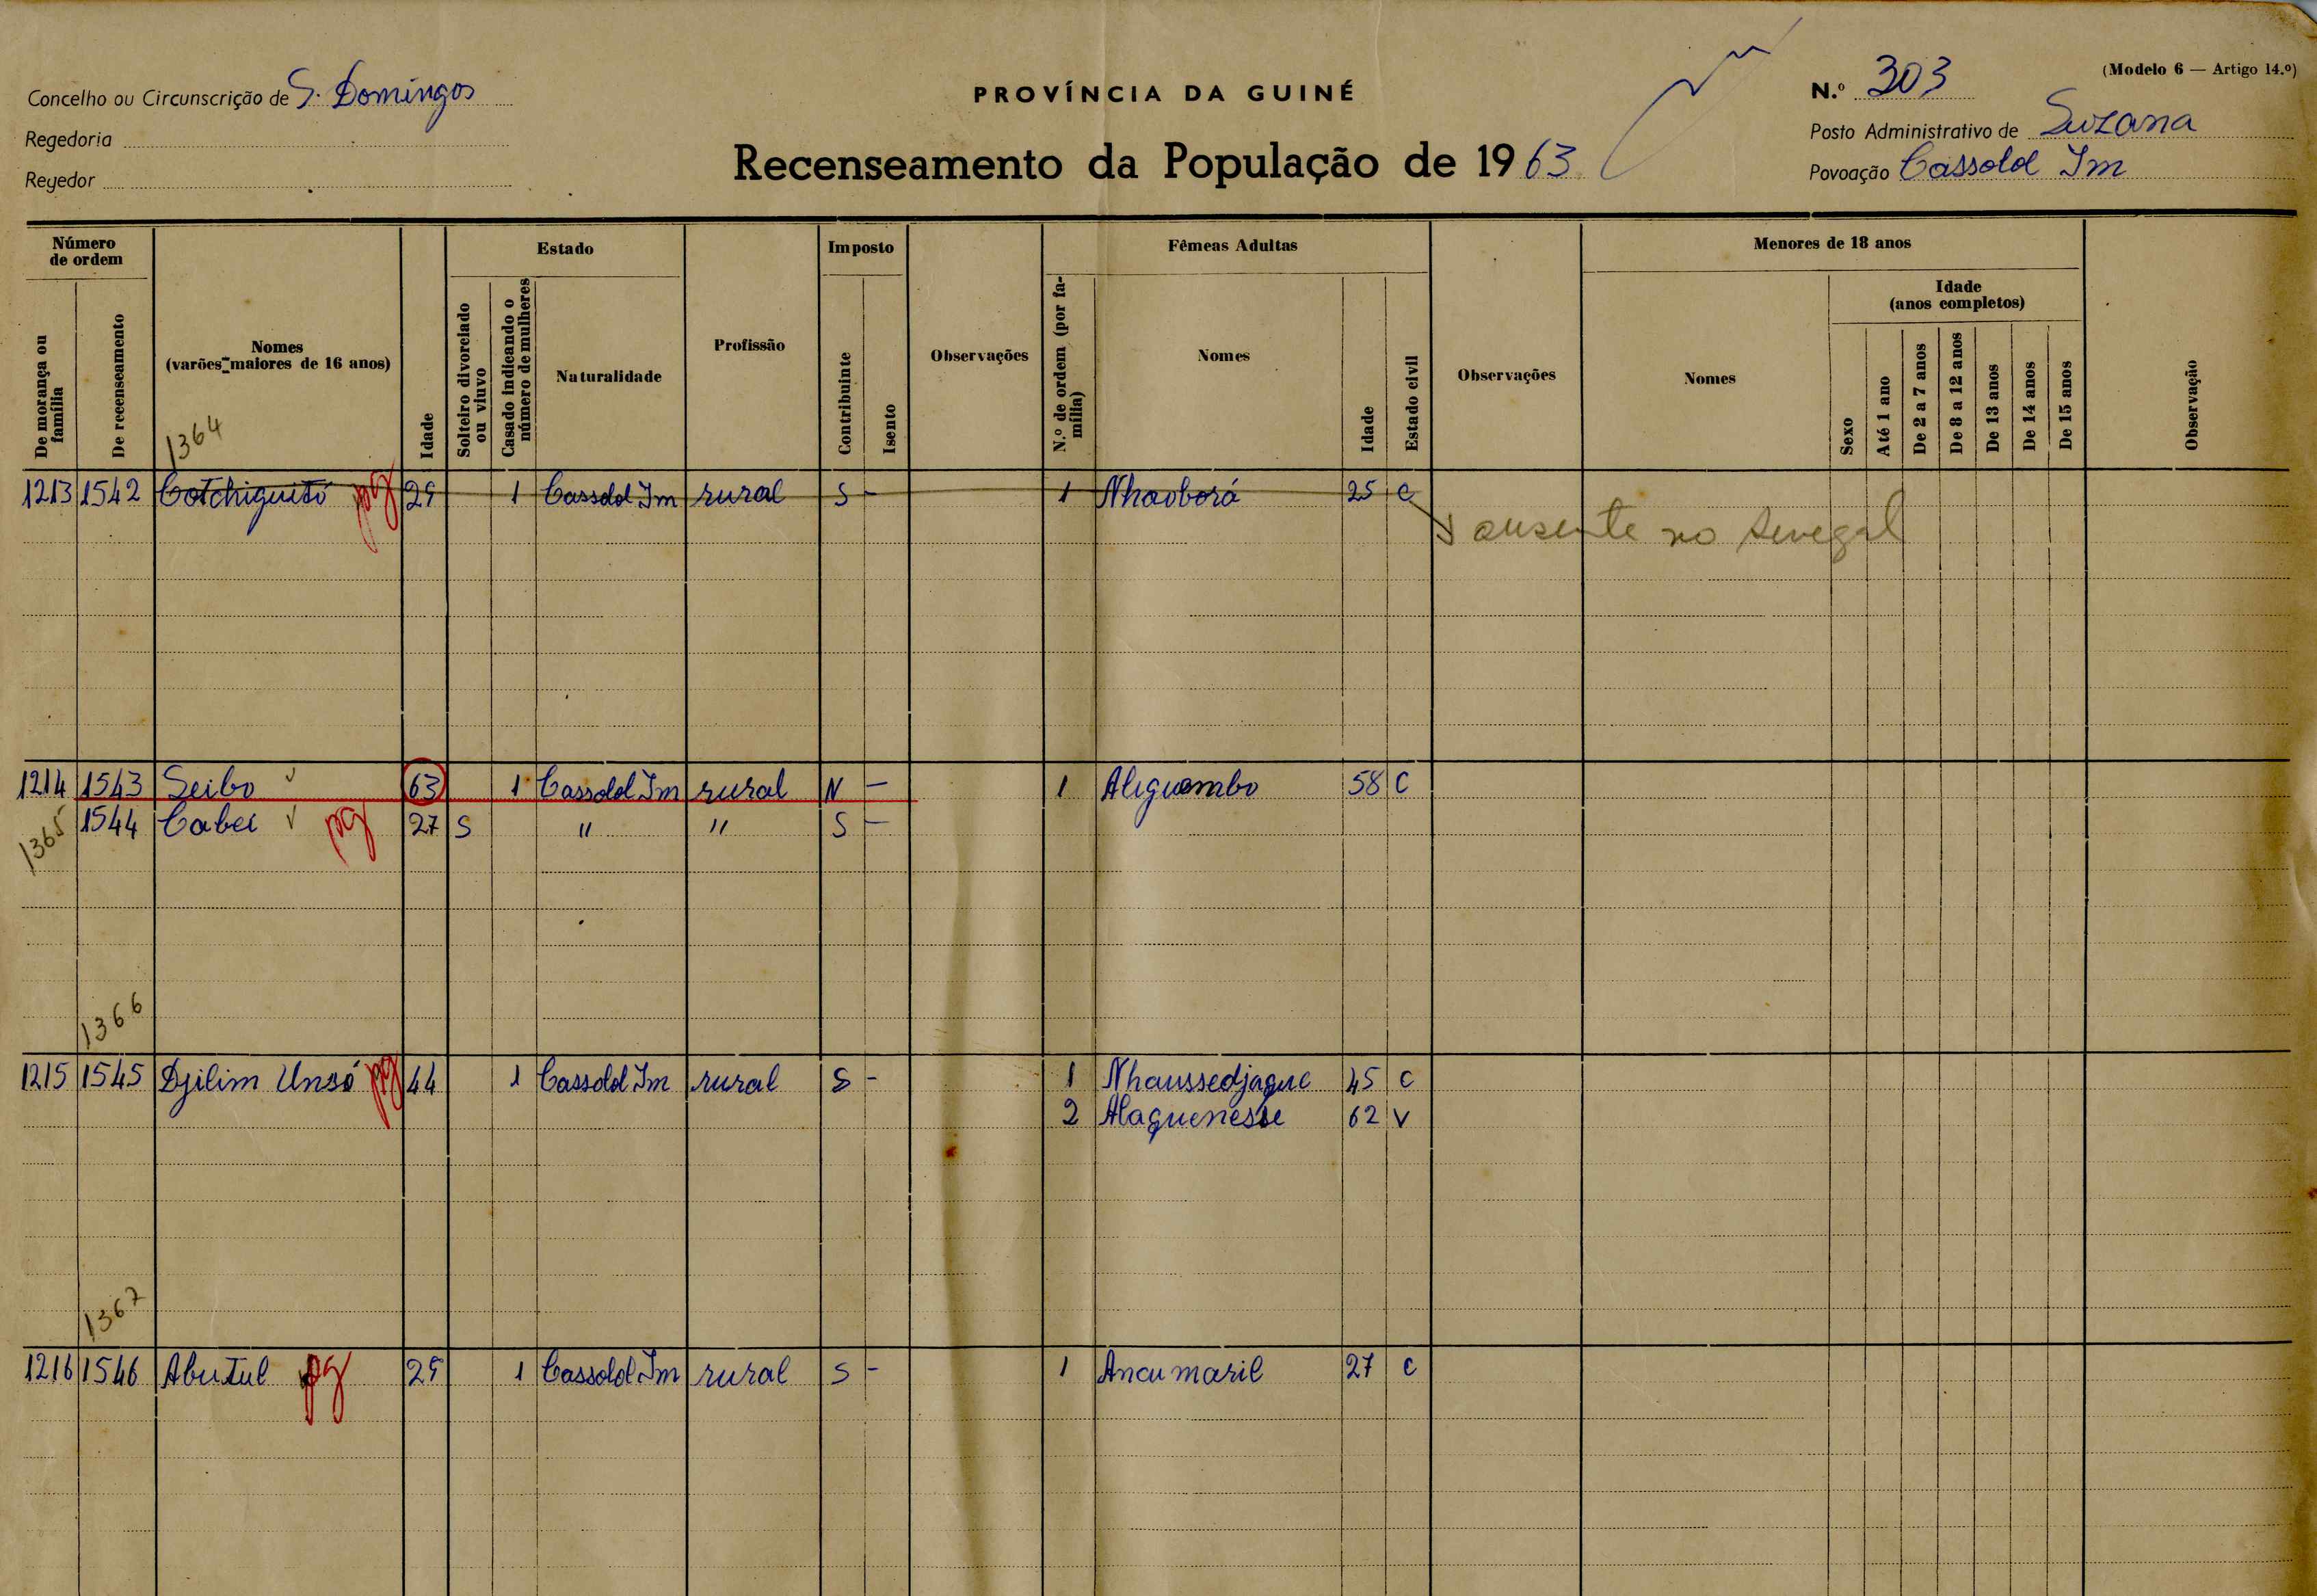 (Modelo 6 — Artigo 14.º)
Concelho ou Circunscrição de S. Domingos
PROVÍNCIA DA GUINÉ
N.º 303
Regedoria
Posto Administrativo de Suzana
Recenseamento da População de 1963
Regedor
Povoação Cassolol Im
Número de ordem
Estado
Imposto
Fêmeas Adultas
Menores de 18 anos
De morança ou família
De recenseamento
Nomes (varões maiores de 16 anos)
Idade
Solteiro divorciado ou viuvo
Casado indicando o número de mulheres
Naturalidade
Profissão
Contribuinte
Isento
Observações
N.º de ordem (por família)
Nomes
Idade
Estado civil
Observações
Nomes
Sexo
Idade (anos completos)
Até 1 ano
De 2 a 7 anos
De 8 a 12 anos
De 13 anos
De 14 anos
De 15 anos
Observação
1364
1213 1542 Cotchiguitó pg 29 1 Cassolol Im rural S - 1 Nhaoborá 25 C
ausente no Senegal
1214 1543 Seibo 63 1 Cassolol Im rural N — 1 Aliguombo 58 C
1365 1544 Cabei pg 27 S " " S —
1366
1215 1545 Djilim Unsó pg 44 1 Cassolol Im rural S - 1 Nhaussedjague 45 C
2 Alaguenesse 62 V
1367
1216 1546 Abutul pg 29 1 Cassolol Im rural S - 1 Ancumaril 27 C